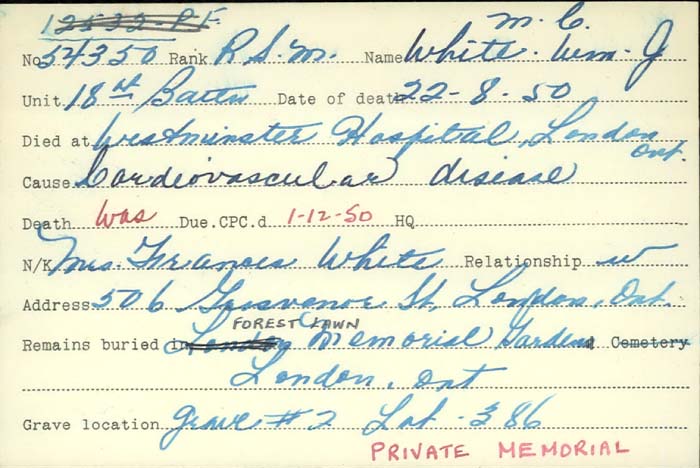 12532-P.F. M.C.
No 54350 Rank R.S.M. Name White. Wm. J
Unit 18th Battn Date of death 22-8-50
Died at Westminster Hospital, London
Ont.
Cause Cardiovascular disease
Death Was Due. CPC.d 1-12-50 HQ
N/K Mrs. Frances White Relationship w
Address 506 Grosvenor St, London, Ont.
FOREST LAWN
Remains buried in London Memorial Gardens Cemetery
London, Ont
Grave location grave #2 Lot - 386
PRIVATE MEMORIAL